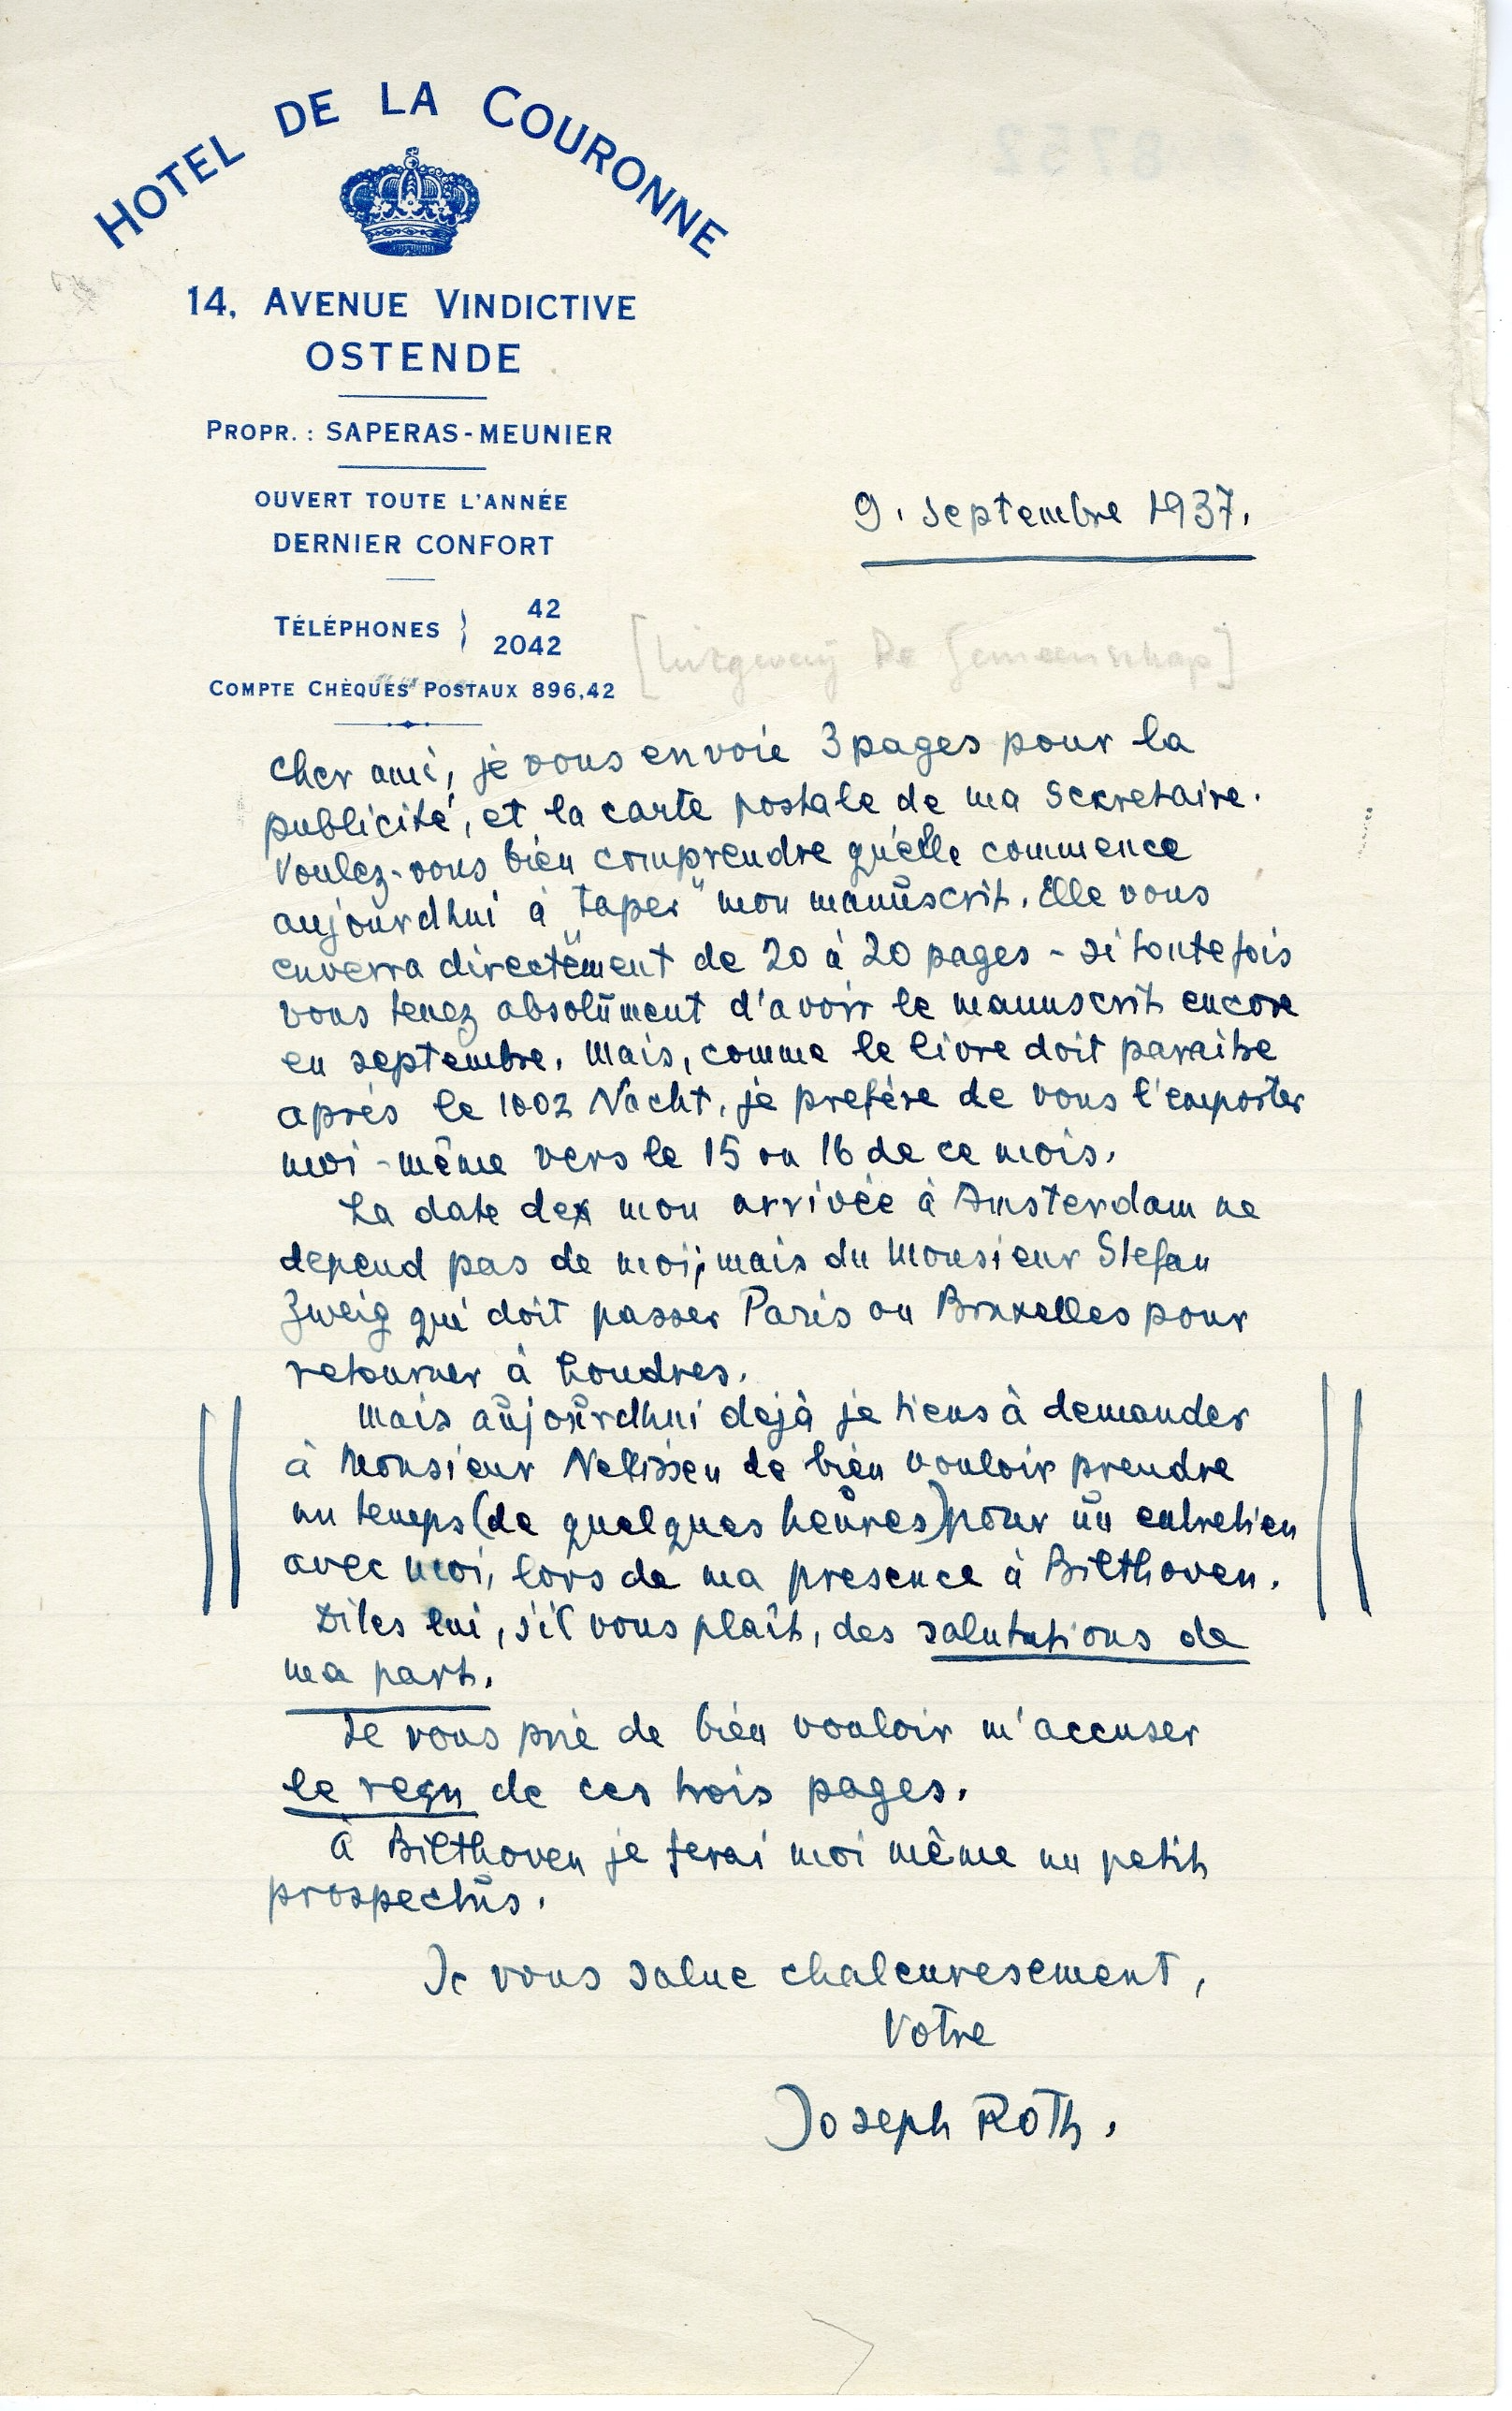 HOTEL DE LA COURONNE
14, AVENUE VINDICTIVE
OSTENDE
PROPR. : SAPERAS-MEUNIER
OUVERT TOUTE L'ANNÉE
DERNIER CONFORT
TÉLÉPHONES } 42
2042
COMPTE CHÈQUES POSTAUX 896,42
9. septembre 1937.
[Uitgeverij De Gemeenschap]
cher ami, je vous envoie 3 pages pour la
publicité, et la carte postale de ma secretaire.
Voulez-vous bien comprendre qu'elle commence
aujourdhui à „taper" mon manuscrit. Elle vous
enverra directement de 20 à 20 pages - si toutefois
vous tenez absolument d'avoir le manuscrit encore
en septembre. Mais, comme le livre doit paraitre
après le 1002 Nacht, je prefère de vous l'emporter
moi-même vers le 15 ou 16 de ce mois.
La date de mon arrivée à Amsterdam ne
depend pas de moi; mais du Monsieur Stefan
Zweig qui doit passer Paris ou Bruxelles pour
retourner à Londres.
Mais aujourdhui dejà je tiens à demander
à Monsieur Nelissen de bien vouloir prendre
un temps (de quelques heures) pour un entretien
avec moi, lors de ma presence à Bilthoven.
Dites lui, s'il vous plaît, des salutations de
ma part.
Je vous prie de bien vouloir m'accuser
le reçu de ces trois pages.
à Bilthoven je ferai moi même un petit
prospectus.
Je vous salue chaleuresement,
Votre
Joseph Roth.